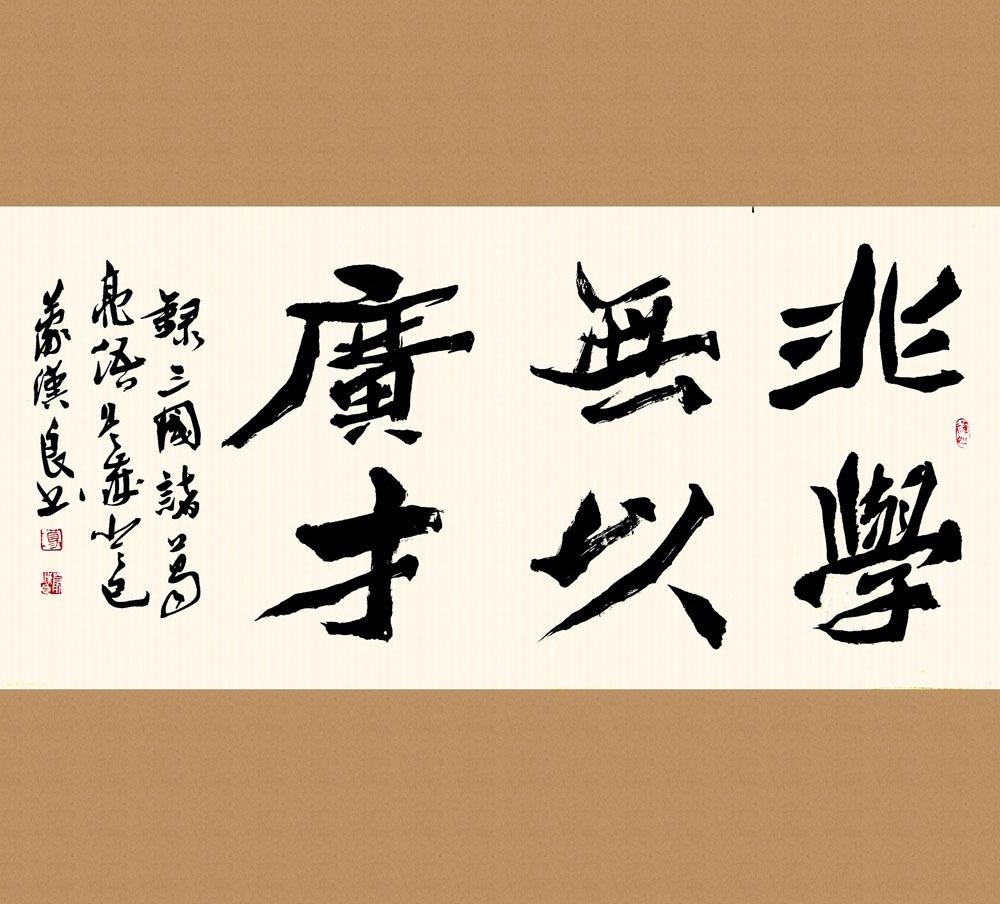 非學
無以
廣才
錄三國諸葛
亮語
漢良书